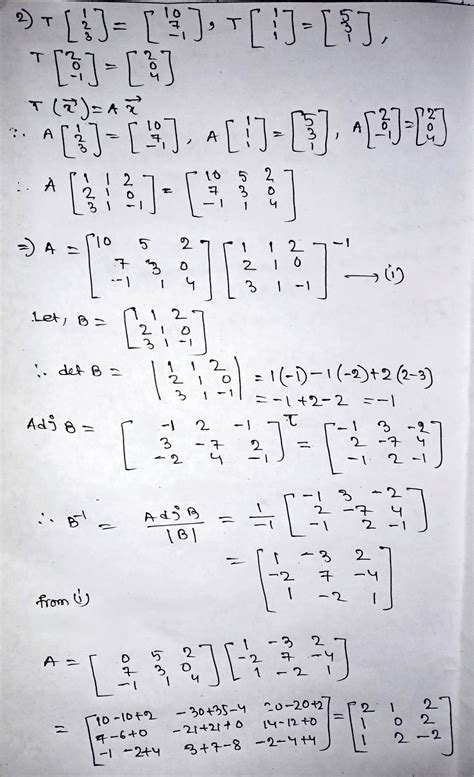 2) T [1 2 3] = [10 7 -1], T [1 1 1] = [5 3 1],
T [2 0 -1] = [2 0 4]
T (x⃗) = A x⃗
∴ A [1 2 3] = [10 7 -1], A [1 1 1] = [5 3 1], A [2 0 -1] = [2 0 4]
∴ A [1 1 2
2 1 0
3 1 -1] = [10 5 2
7 3 0
-1 1 4]
⇒ A = [10 5 2
7 3 0
-1 1 4] [1 1 2
2 1 0
3 1 -1]^-1 → (i)
Let, B = [1 1 2
2 1 0
3 1 -1]
∴ det B = |1 1 2
2 1 0
3 1 -1| = 1(-1)-1(-2)+2(2-3)
= -1+2-2 = -1
Adj B = [-1 2 -1
3 -7 2
-2 4 -1]^T = [-1 3 -2
2 -7 4
-1 2 -1]
∴ B^-1 = Adj B / |B| = 1/-1 [-1 3 -2
2 -7 4
-1 2 -1]
= [1 -3 2
-2 7 -4
1 -2 1]
from (i)
A = [0 5 2
7 3 0
-1 1 4] [1 -3 2
-2 7 -4
1 -2 1]
= [10-10+2 -30+35-4 20-20+2
7-6+0 -21+21+0 14-12+0
-1-2+4 3+7-8 -2-4+4] = [2 1 2
1 0 2
1 2 -2]